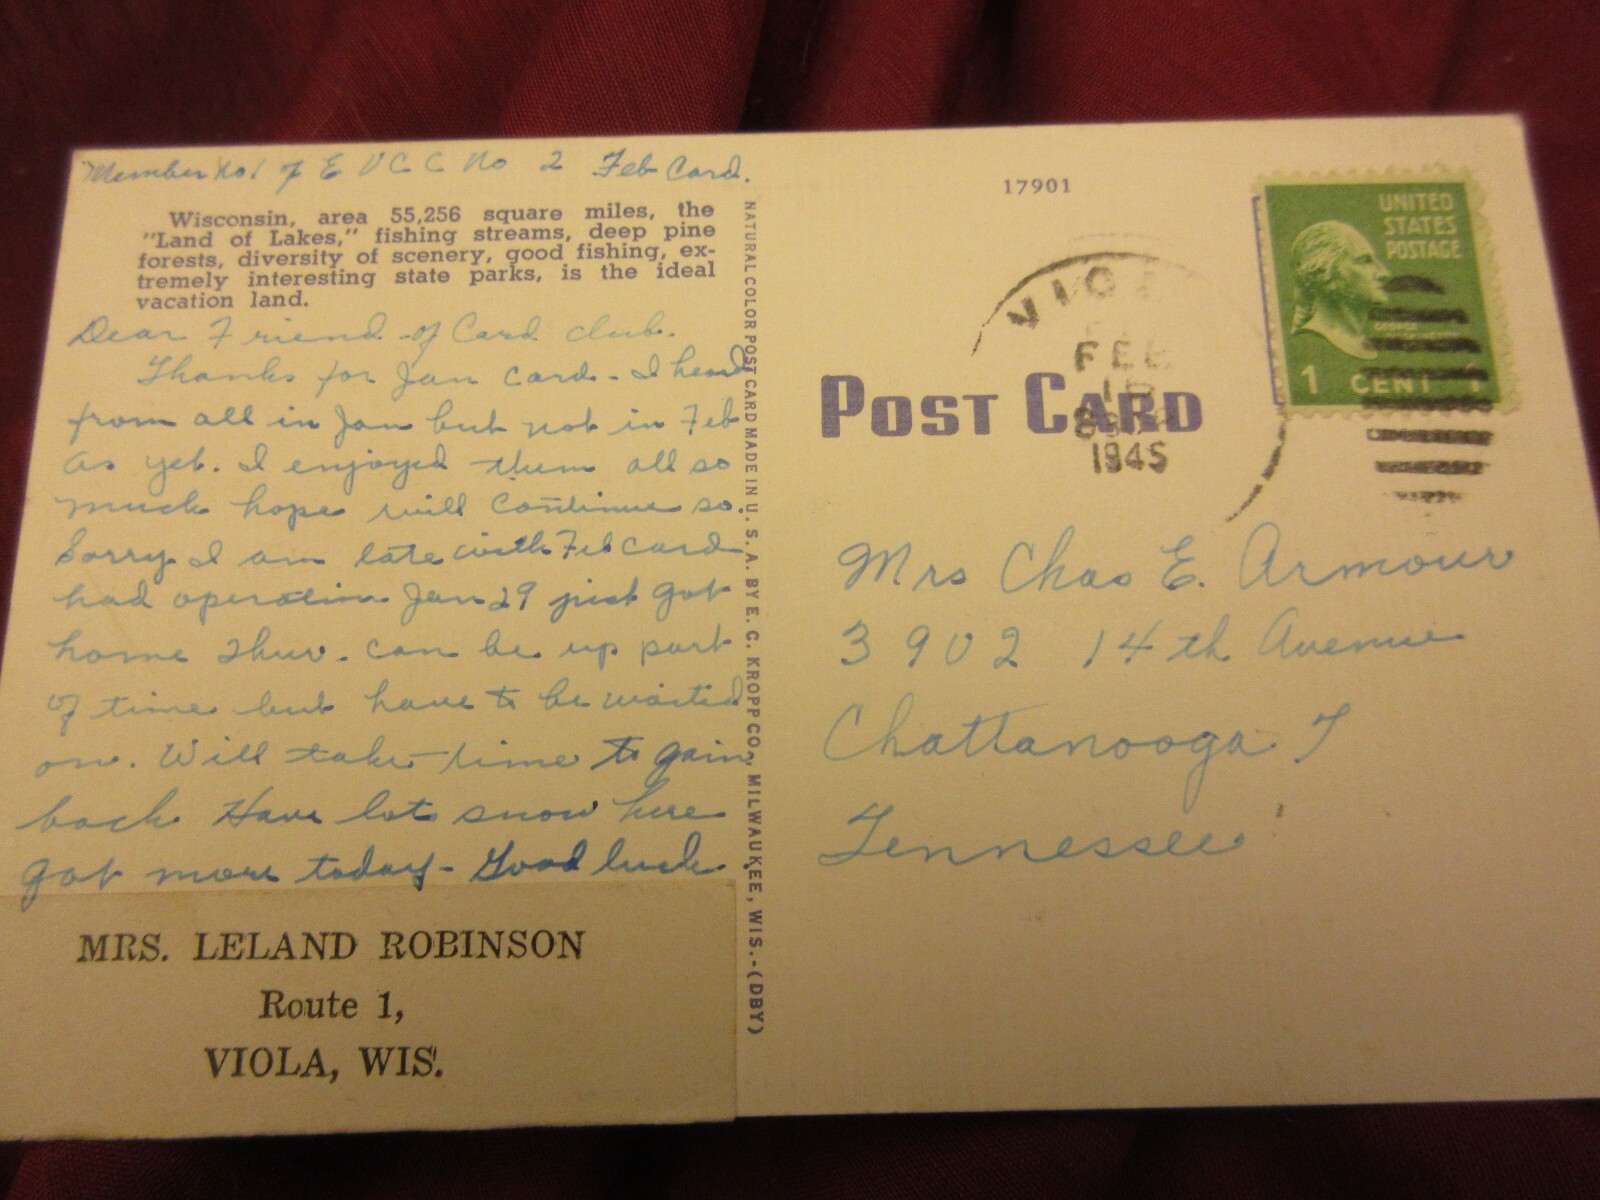 Member No 1 of E V C C No 2 Feb Card.
Wisconsin, area 55,256 square miles, the
"Land of Lakes," fishing streams, deep pine
forests, diversity of scenery, good fishing, ex-
tremely interesting state parks, is the ideal
vacation land.
Dear Friend of Card club.
Thanks for Jan card - I heard
from all in Jan but not in Feb
as yet. I enjoyed them all so
much hope will continue so.
Sorry I am late with Feb card
had operation Jan 29 just got
home Thur. can be up part
of time but have to be waited
on. Will take time to gain
back Have lots snow here
got more today - Good luck.
MRS. LELAND ROBINSON
Route 1,
VIOLA, WIS.
NATURAL COLOR POST CARD MADE IN U. S. A. BY E. C. KROPP CO., MILWAUKEE, WIS.-(DBY)
17901
POST CARD
FEB
1945
UNITED
STATES
POSTAGE
GEORGE
1 CENT 1
Mrs Chas E. Armour
3902 14th Avenue
Chattanooga T
Tennessee